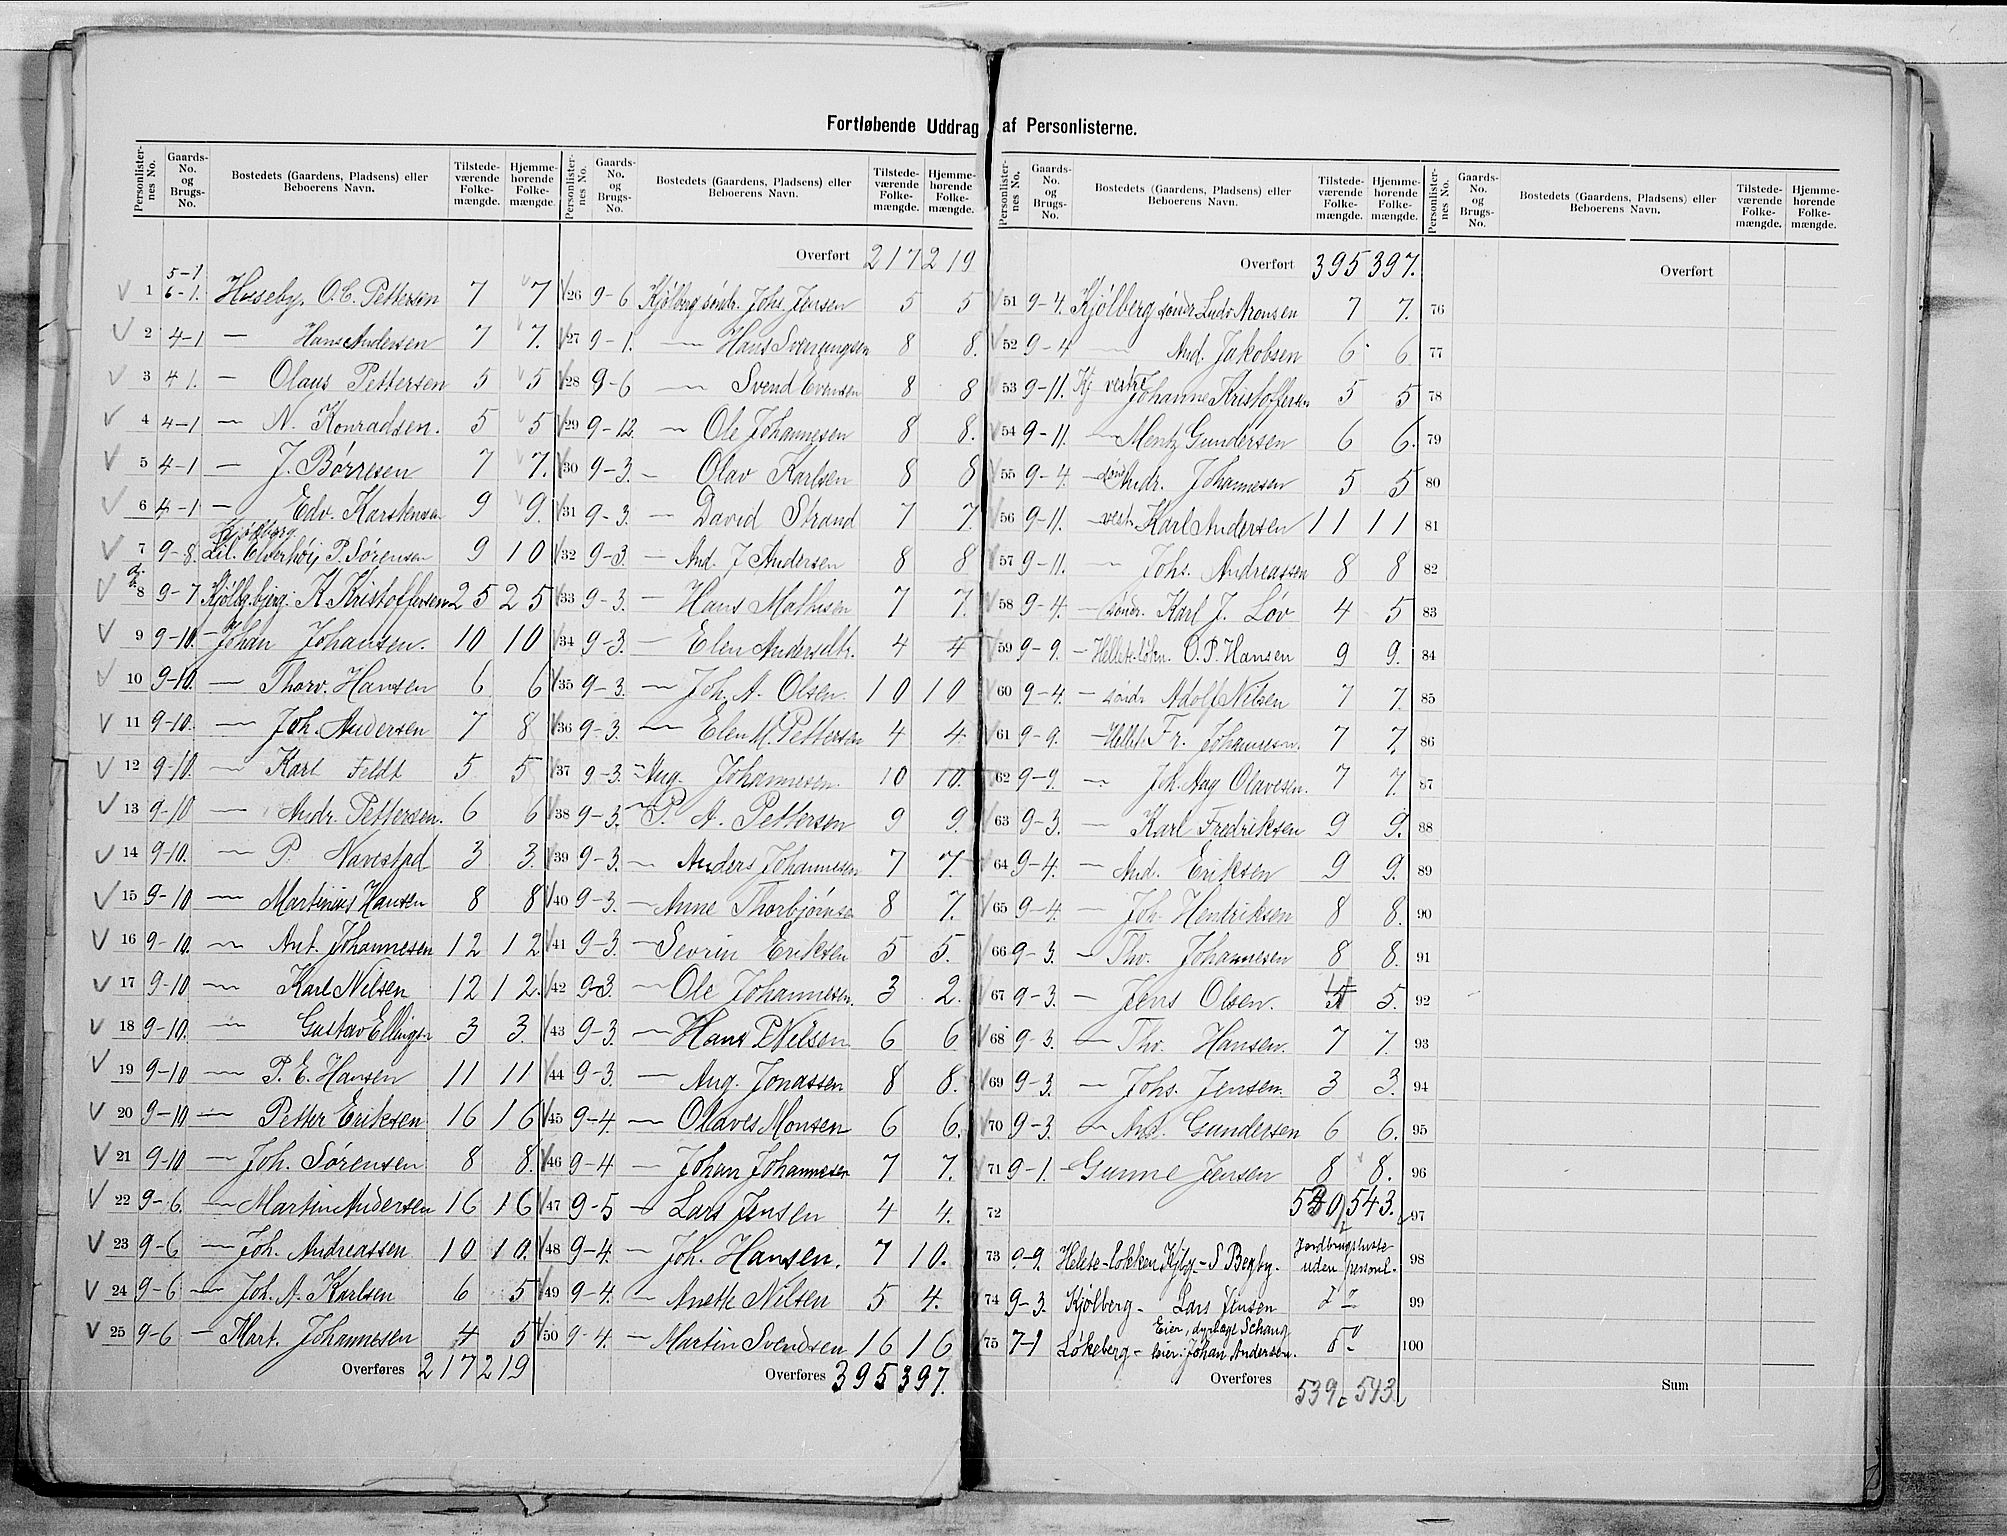 Fortløbende Uddrag af Personlisterne.
Personlister-nes No. | Gaards-No. og Brugs-No. | Bostedets (Gaardens, Pladsens) eller Beboerens Navn. | Tilstede-værende Folke-mængde. | Hjemme-hørende Folke-mængde.
1 5-1 6-1. Huseby, O.C. Pettersen 7 7
2 4-1 — Hans Andersen 7 7.
3 4-1. — Olaus Pettersen 5 5
4 4-1 — N. Konradsen. 5 5
5 4-1 — J. Børresen 7 7.
6 4-1 — Edv. Karstensen 9 9.
7 9-8. Kjølberg Lil. Elverhøj P. Sørensen 9 10
8 9-7 Kjølbgbjerg. K. Kristoffersen 25 25
9 9-10. — Johan Johansen. 10 10
10 9-10. — Thorv. Hansen 6 6
11 9-10. — Joh. Andersen 7 8
12 9-10. — Karl Feldt 5 5
13 9-10 — Andr. Pettersen. 6 6
14 9-10. — P. Navestad 3 3.
15 9-10 — Martinius Hansen 8 8
16 9-10. — Ant. Johannesen 12 12
17 9-10 — Karl Nilsen 12 12.
18 9-10. — Gustav Ellingsn 3 3.
19 9-10 — P. E. Hansen 11 11
20 9-10 — Petter Eriksen 16 16
21 9-10 — Joh. Sørensen 8 8.
22 9-6. — Martin Andersen 16 16
23 9-6 — Joh. Andreassen 10 10.
24 9-6 — Joh. A. Karlsen 6 5
25 9-6 — Mart. Johannesen 4 5
Overføres 217 219
Personlister-nes No. | Gaards-No. og Brugs-No. | Bostedets (Gaardens, Pladsens) eller Beboerens Navn. | Tilstede-værende Folke-mængde. | Hjemme-hørende Folke-mængde.
Overført 217 219
26 9-6 Kjølberg søndr. Johs. Jensen 5 5
27 9-1. — Hans Sveningsen 8 8.
28 9-6 — Svend Evensen 8 8
29 9-12. — Ole Johannesen 8 8.
30 9-3. — Olav Karlsen 8 8
31 9-3. — David Strand 7 7.
32 9-3 — And. J Andersen 8 8
33 9-3. — Hans Mathisen 7 7.
34 9-3. — Elen Andersdtr. 4 4
35 9-3. — Joh. A. Olsen. 10 10
36 9-3. — Elen M. Pettersen 4 4.
37 9-3. — Aug. Johannesen. 10 10.
38 9-3. — P. A. Pettersen 9 9.
39 9-3. — Anders Johannesen 7 7.
40 9-3. — Anne Thorbjørnsen 8 7.
41 9-3. — Sevrin Eriksen 5 5.
42 9-3. — Ole Johannesen. 3 2.
43 9-3. — Hans P Nilsen 6 6.
44 9-3. — Aug. Jonassen 8 8.
45 9-4. — Olaves Monsen 6 6.
46 9-4 — Johan Johannesen 7 7.
47 9-5 — Lars Jensen 4 4.
48 9-4. — Joh. Hansen. 7 10.
49 9-4. — Anette Nilsen 5 4.
50 9-4. — Martin Svendsen 16 16
Overføres 395 397.
Personlister-nes No. | Gaards-No. og Brugs-No. | Bostedets (Gaardens, Pladsens) eller Beboerens Navn. | Tilstede-værende Folke-mængde. | Hjemme-hørende Folke-mængde.
Overført 395 397.
51 9-4. Kjølberg søndr Ludv Aronsen 7 7.
52 9-4 — And. Jakobsen 6 6.
53 9-11. Kj. vestre Johanne Kristoffersen 5 5
54 9-11. — Mentz Gundersen 6 6.
55 9-4. — sønd Andr. Johannesen 5 5
56 9-11. — vest. Karl Andersen 11 11
57 9-11. — Johs. Andreassen 8 8
58 9-4. — søndr. Karl J. Løv 4 5
59 9-9. — O. P. Hansen 9 9.
60 9-4. — søndr Adolf Nilsen 7 7.
61 9-9. — Fr. Johannesen. 7 7.
62 9-9. — Joh. Aag Olavesen. 7 7.
63 9-3. — Karl Fredriksen 9 9.
64 9-4. — And. Eriksen 9 9.
65 9-4. — Joh. Hendriksen 8 8.
66 9-3. — Thv. Johannesen 8 8.
67 9-3. — Jens Olsen. 5.
68 9-3. — Thv. Hansen. 7 7.
69 9-3. — Johs. Jensen. 3 3.
70 9-3. — And. Gundersen 6 6.
71 9-1. — Gunne Jensen 8 8.
72 539 543.
73 9-9. Helete-løkken Kjbg. - S Begby. Jordbrugsliste uden personl.
74 9-3. Kjølberg - Lars Jensen
75 7-1 Løkeberg - Eier, dyrlæge Schaug, bier. Johan Andersen.
Overføres 539 543
Personlister-nes No. | Gaards-No. og Brugs-No. | Bostedets (Gaardens, Pladsens) eller Beboerens Navn. | Tilstede-værende Folke-mængde. | Hjemme-hørende Folke-mængde.
Overført
76
77
78
79
80
81
82
83
84
85
86
87
88
89
90
91
92
93
94
95
96
97
98
99
100
Sum